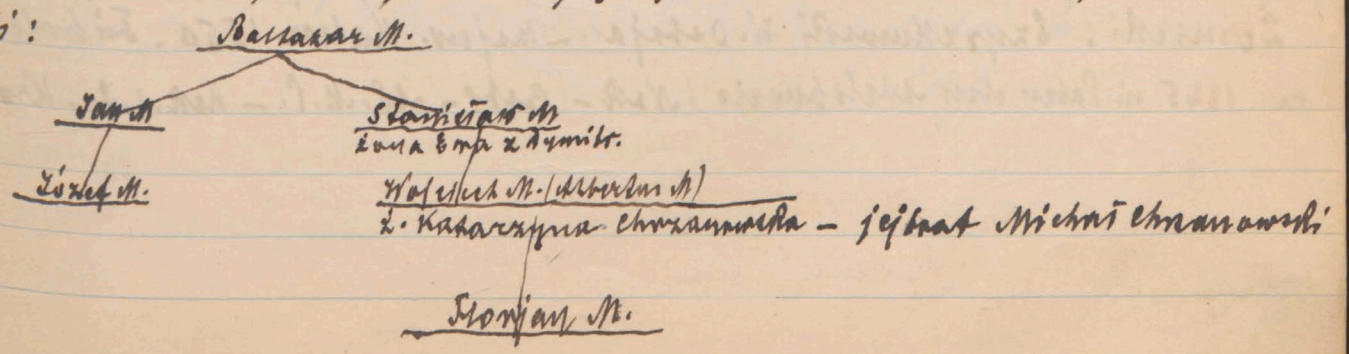 Baltazar M.
Jan M Stanisław M
żona Ewa z Dymitr.
Józef M. Wojciech M. (Albertus M)
ż. Katarzyna Chrzanowska – jej brat Michał Chrzanowski
Florjan M.